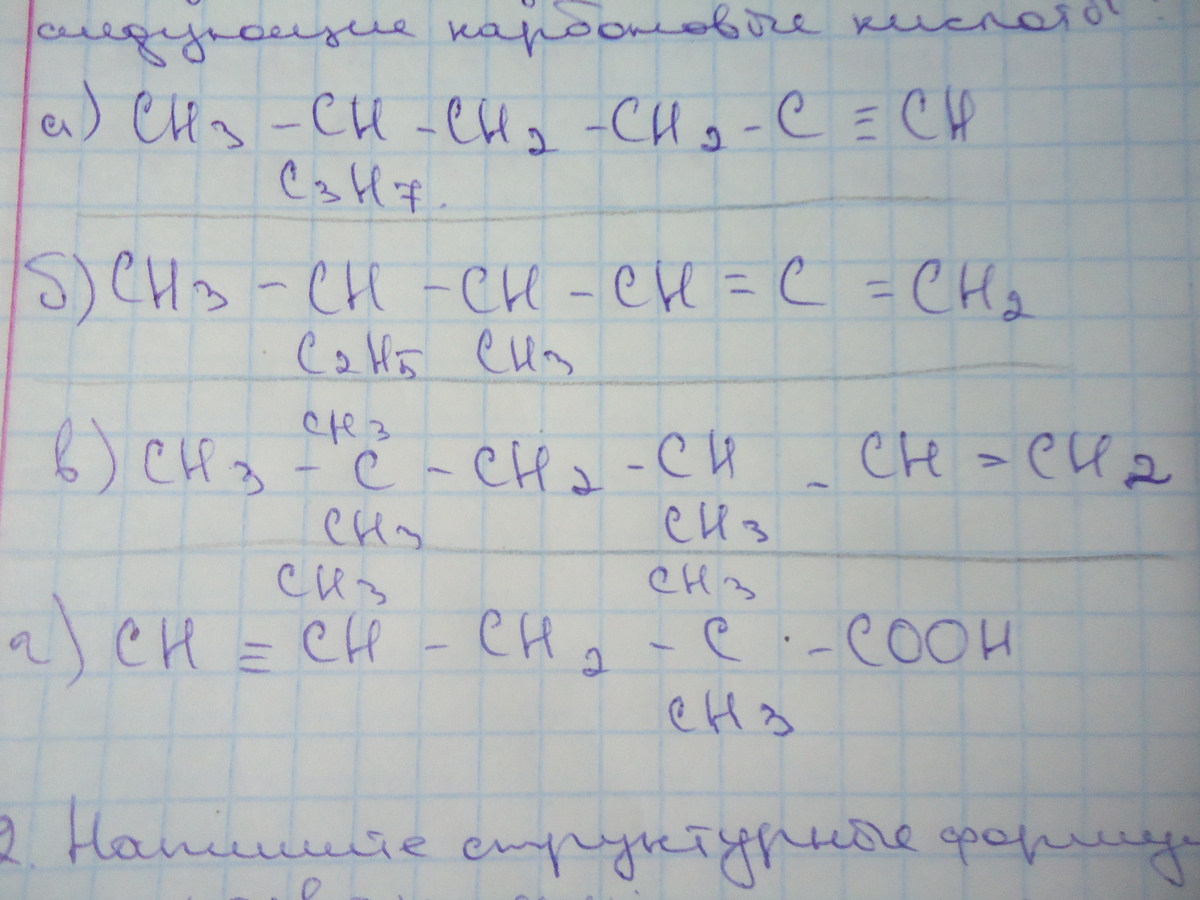 следующие карбоновые кислоты:
а) CH3 - CH - CH2 - CH2 - C ≡ CH
C3H7.
б) CH3 - CH - CH - CH = C = CH2
C2H5 CH3
CH3
в) CH3 - C - CH2 - CH - CH = CH2
CH3 CH3
CH3 CH3
г) CH ≡ CH - CH2 - C - COOH
CH3
2. Напишите структурные формул